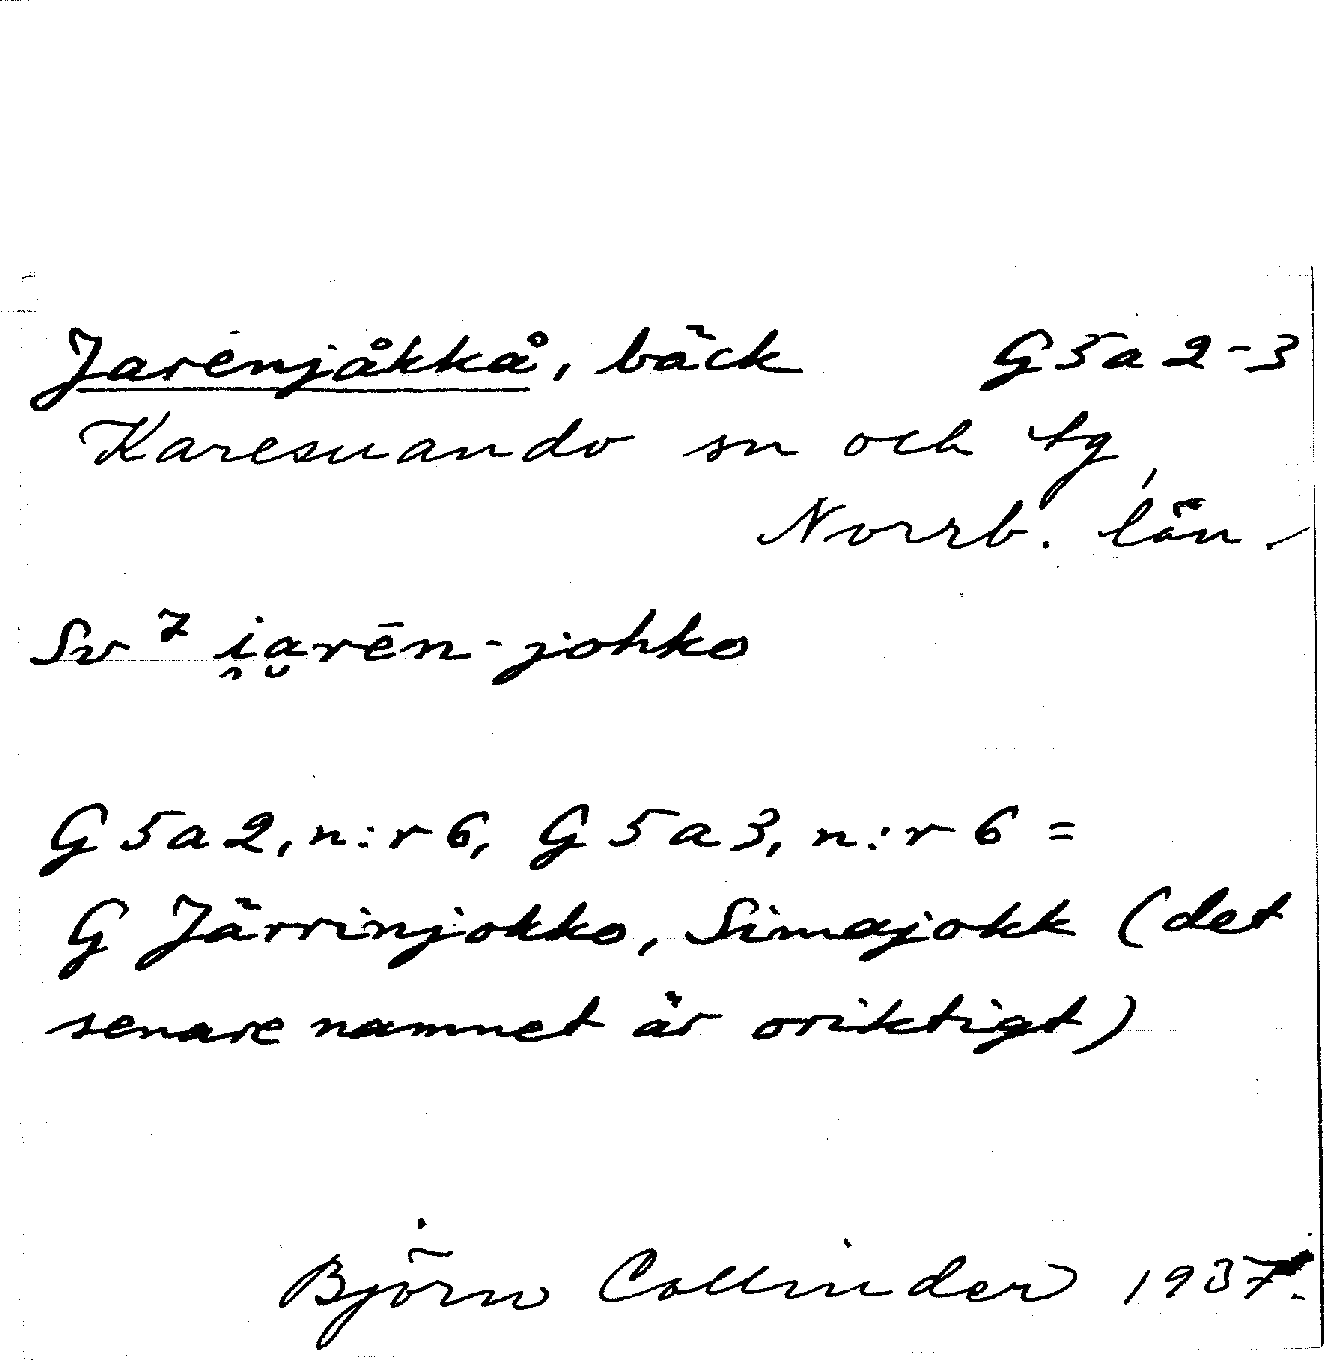 Jarēnjåkkå, bäck G5a2-3
Karesuando sn och tg,
Norrb. län.
Sv⁷ i̯a̮rēn-johko
G5a2, n:r 6, G5a3, n:r 6 =
G Järrinjokko, Simajokk (det
senare namnet är oriktigt)
Björn Collinder 1937.